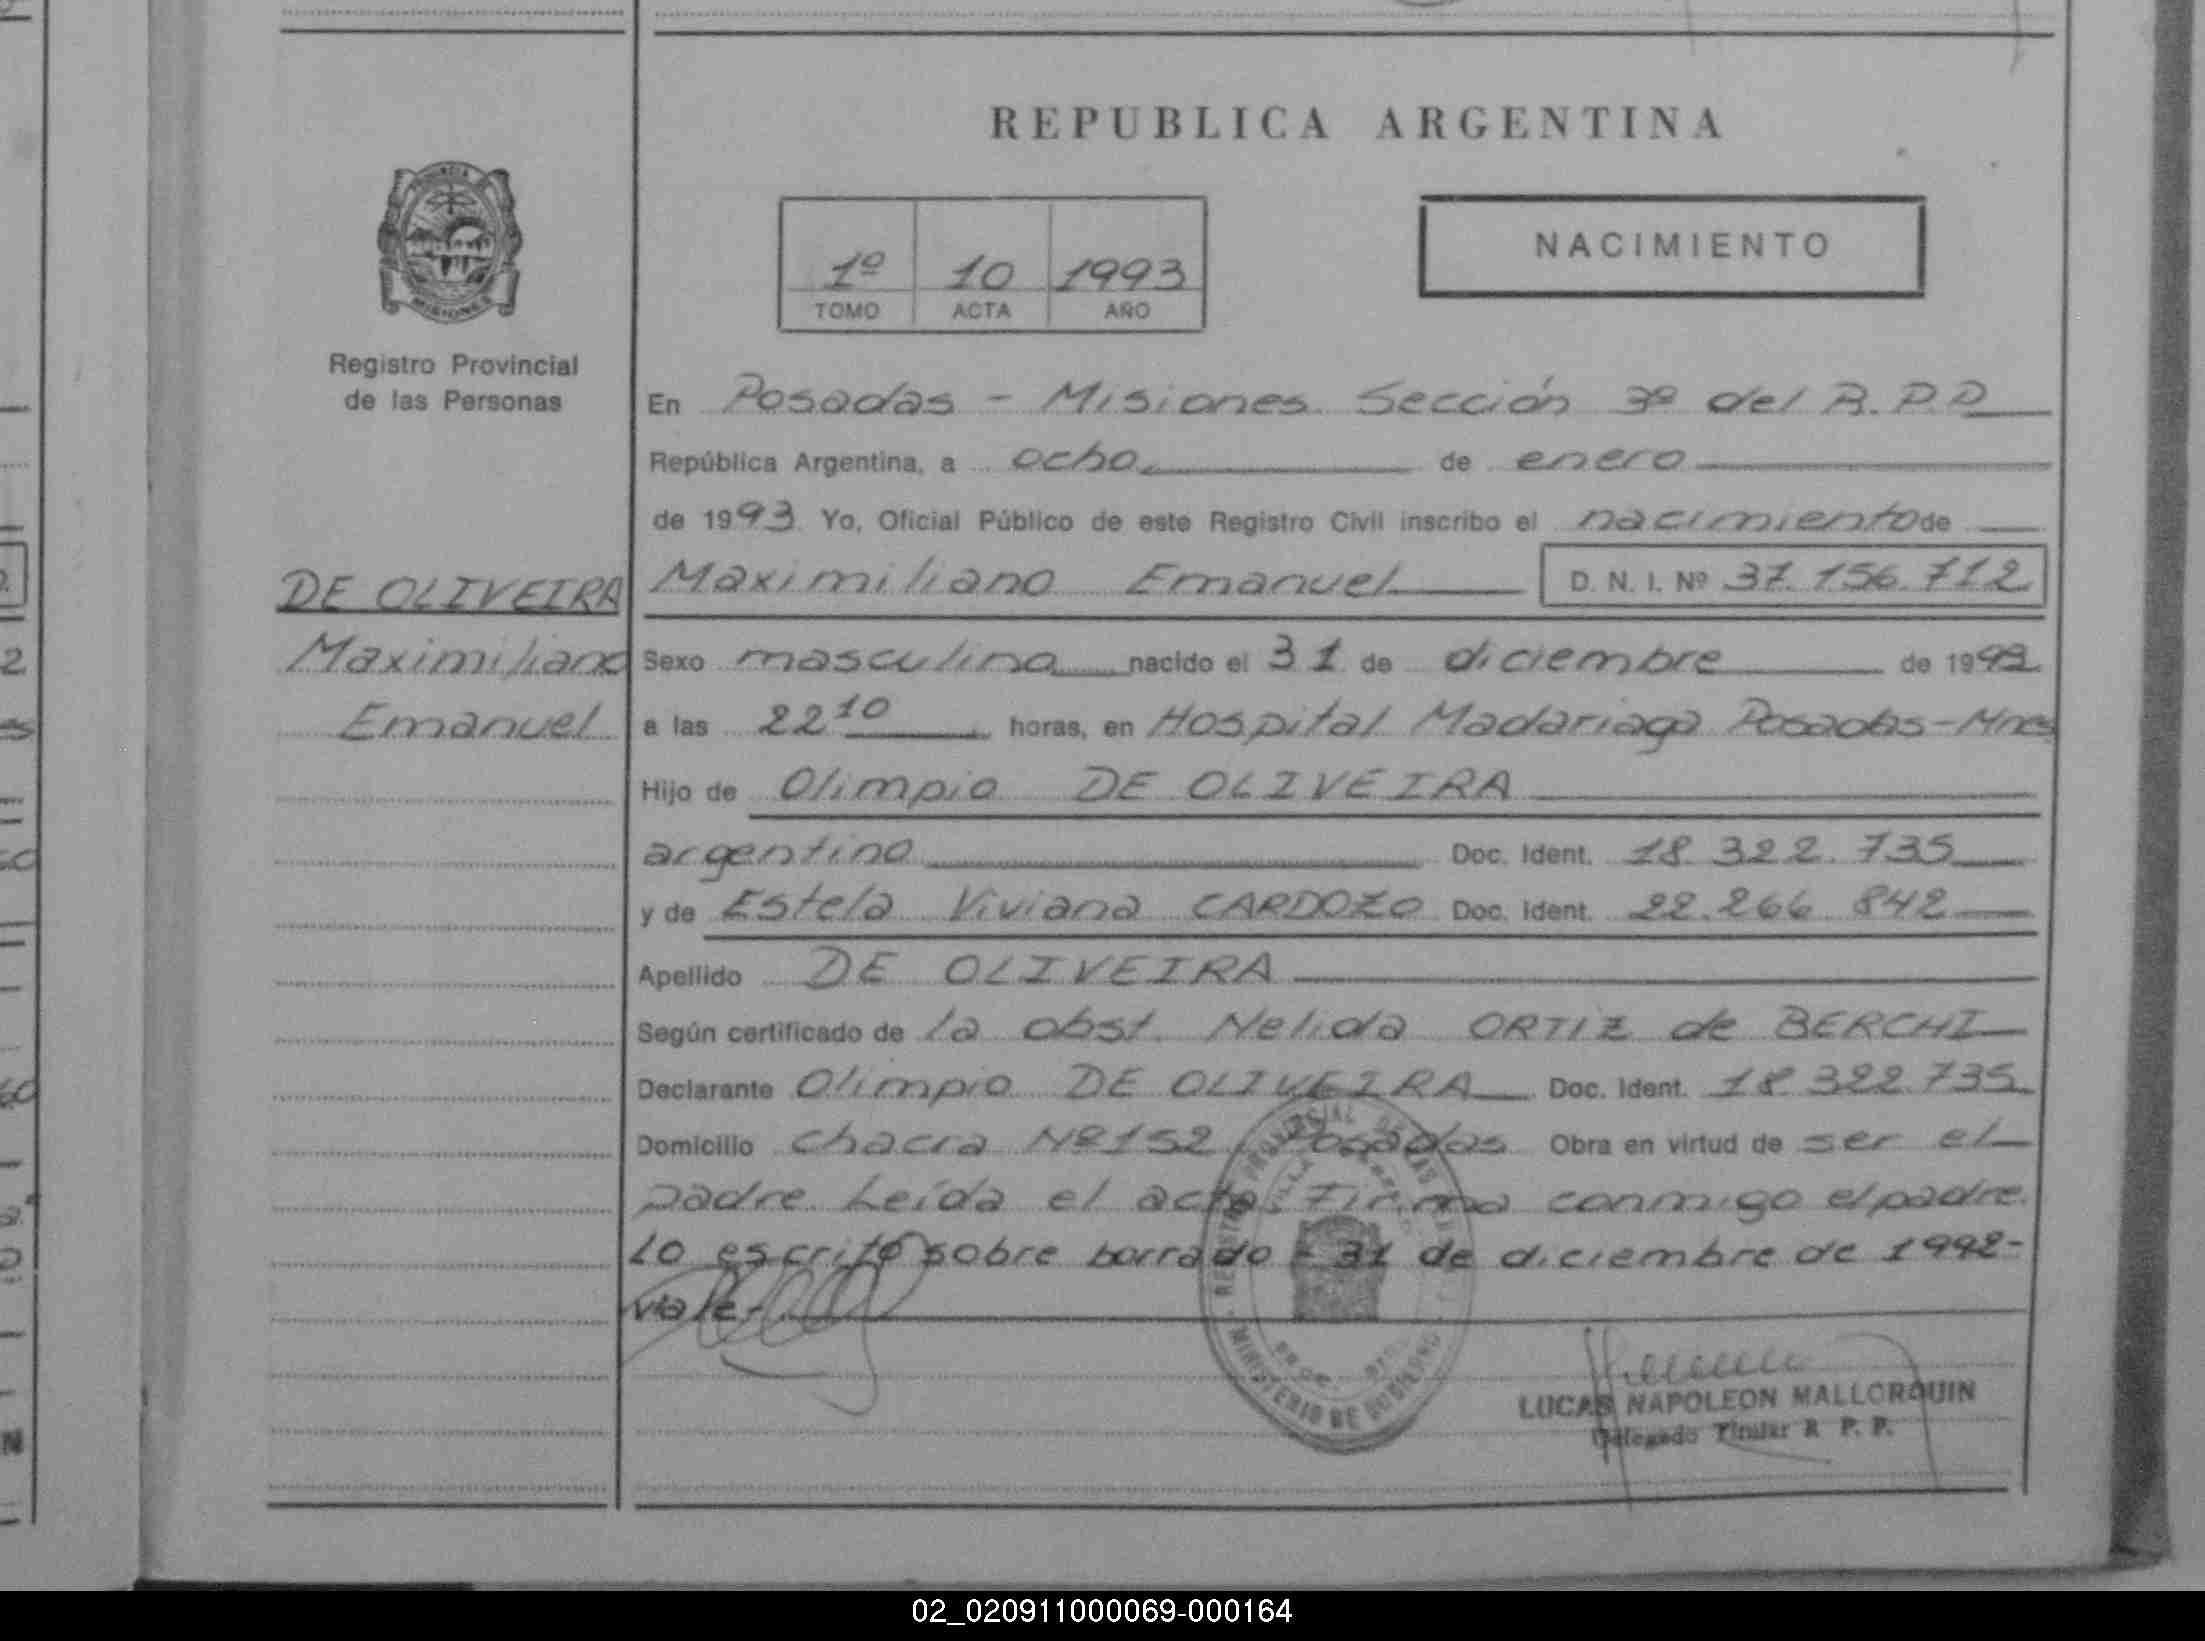 REPUBLICA ARGENTINA
PROVINCIA
MISIONES
Registro Provincial
de las Personas
1º 10 1993
TOMO ACTA AÑO
NACIMIENTO
En Posadas - Misiones Sección 3º del R.P.P
República Argentina, a ocho de enero
de 1993 Yo, Oficial Público de este Registro Civil inscribo el nacimiento de
DE OLIVEIRA
Maximiliano
Emanuel
Maximiliano Emanuel D. N. I. Nº 37.156.712
Sexo masculino nacido el 31 de diciembre de 1992
a las 22 10 horas, en Hospital Madariaga Posadas-Mnes
Hijo de Olimpio DE OLIVEIRA
argentino Doc. Ident. 18.322.735
y de Estela Viviana CARDOZO Doc. Ident. 22.266.842
Apellido DE OLIVEIRA
Según certificado de la obst. Nelida ORTIZ de BERCHI
Declarante Olimpio DE OLIVEIRA Doc. Ident. 18.322.735
Domicilio chacra Nº152 Posadas Obra en virtud de ser el
padre. Leída el acta Firma conmigo el padre.
Lo escrito sobre borrado - 31 de diciembre de 1992-
vale-
MINISTERIO DE GOBIERNO
LUCAS NAPOLEON MALLORQUIN
Delegado Titular R. P. P.
02_020911000069-000164